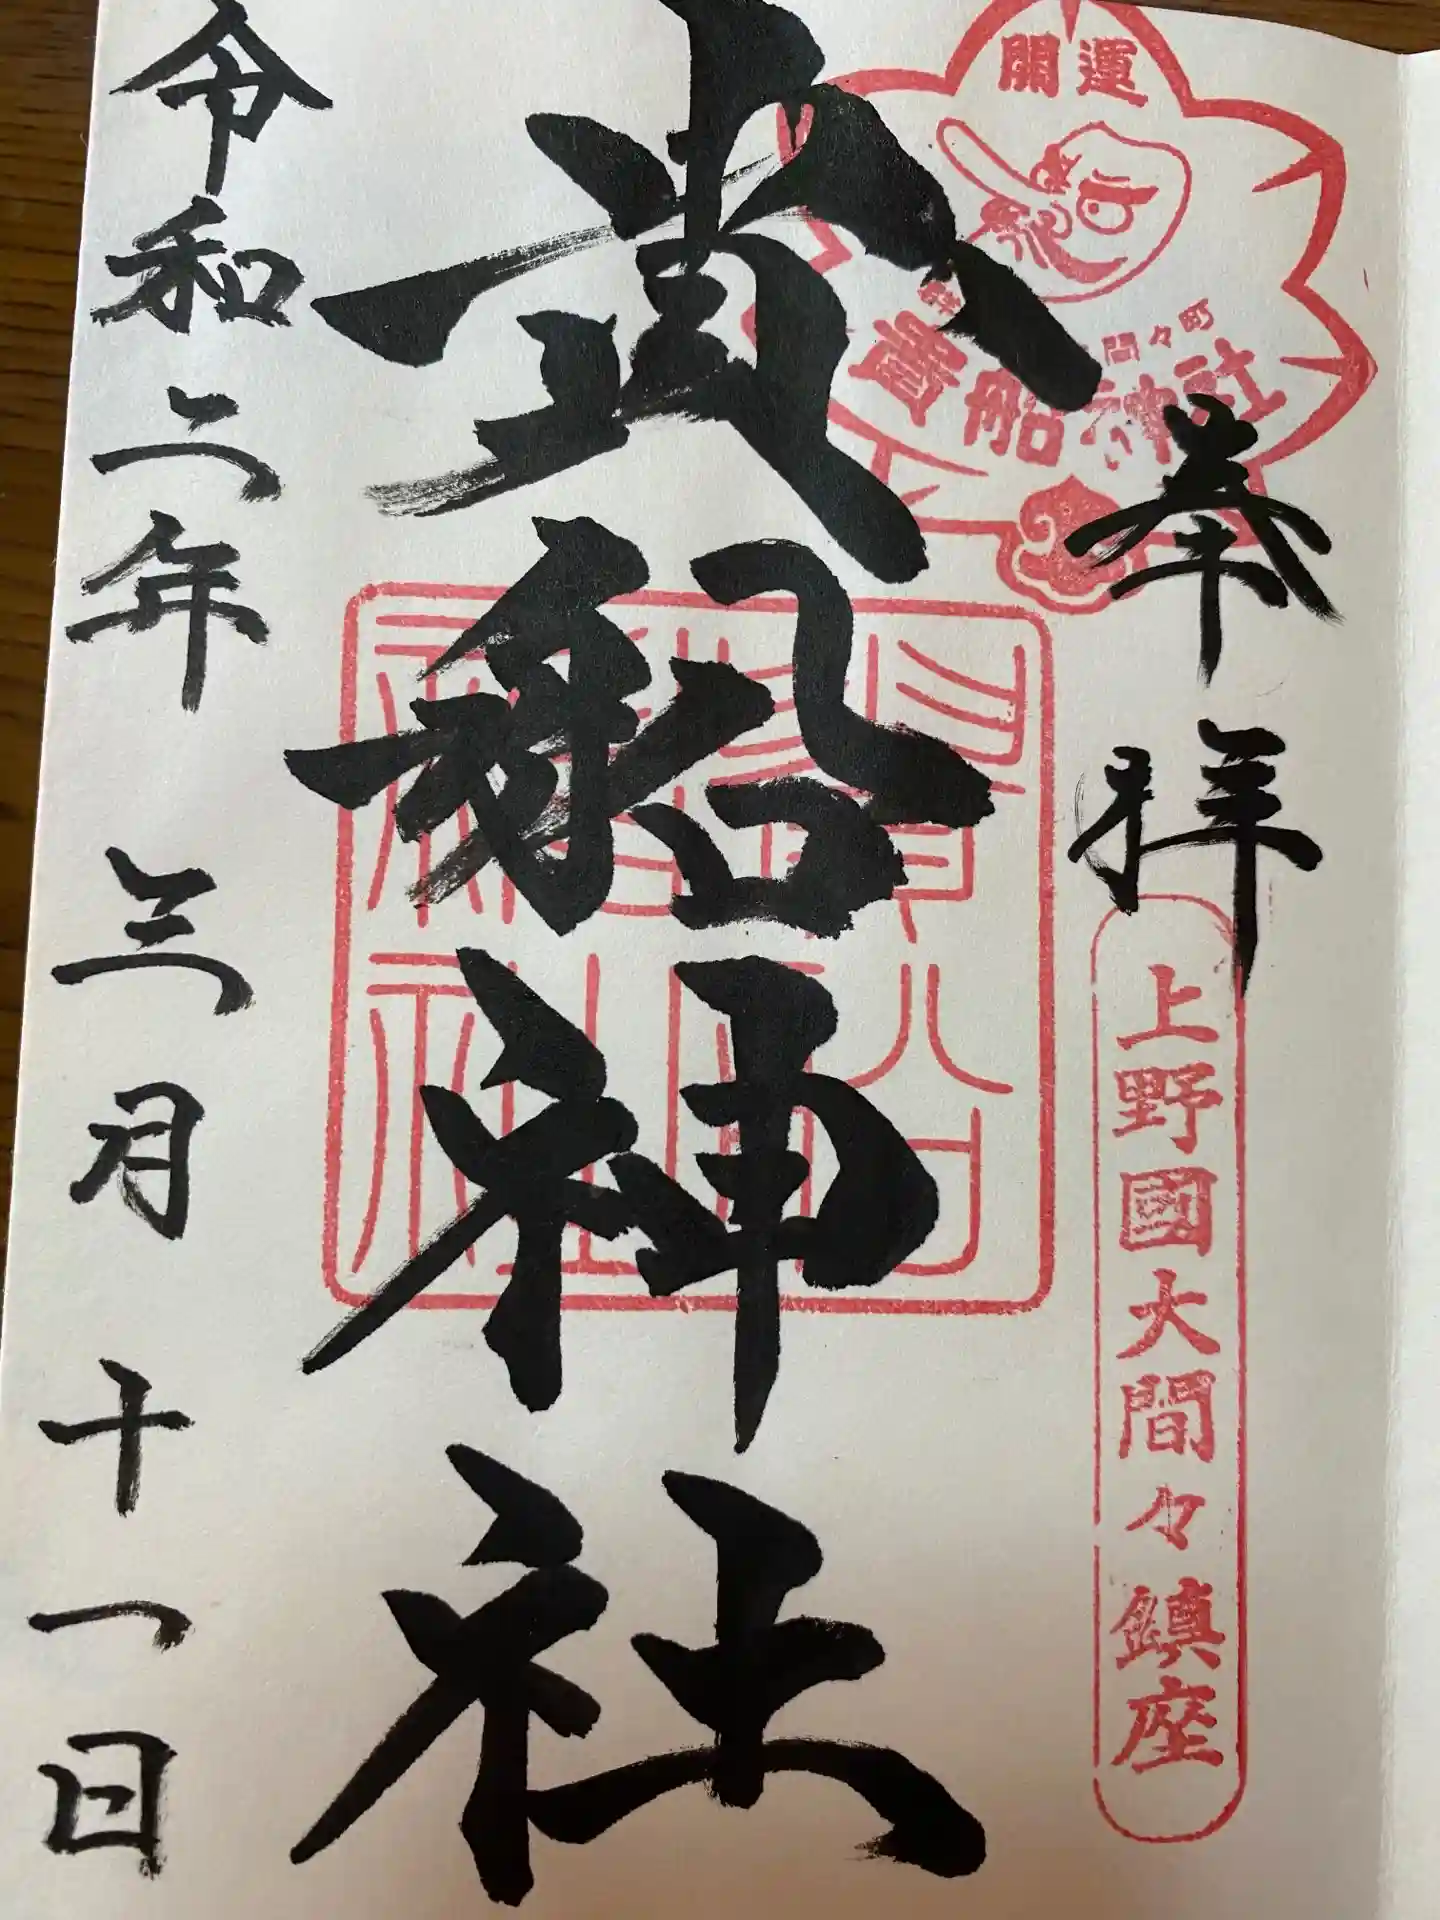 奉拝
上野國大間々鎮座
開運
間々町
貴船神社
貴船神社
令和二年三月十一日